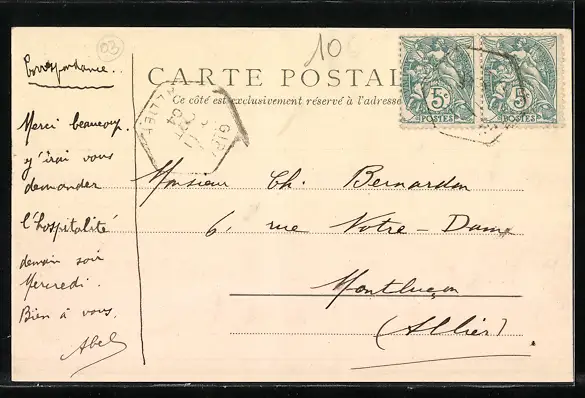 03
10
Correspondance..
CARTE POSTAL
Ce côté est exclusivement réservé à l'adresse
5c
POSTES
5c
POSTES
ALLIER
04
Merci beaucoup.
y'irai vous
demander
l'hospitalité
demain soir
Mercredi.
Bien à vous.
Abel
Monsieur Ch. Bernardon
6, rue Notre-Dame
Montluçon
(Allier)